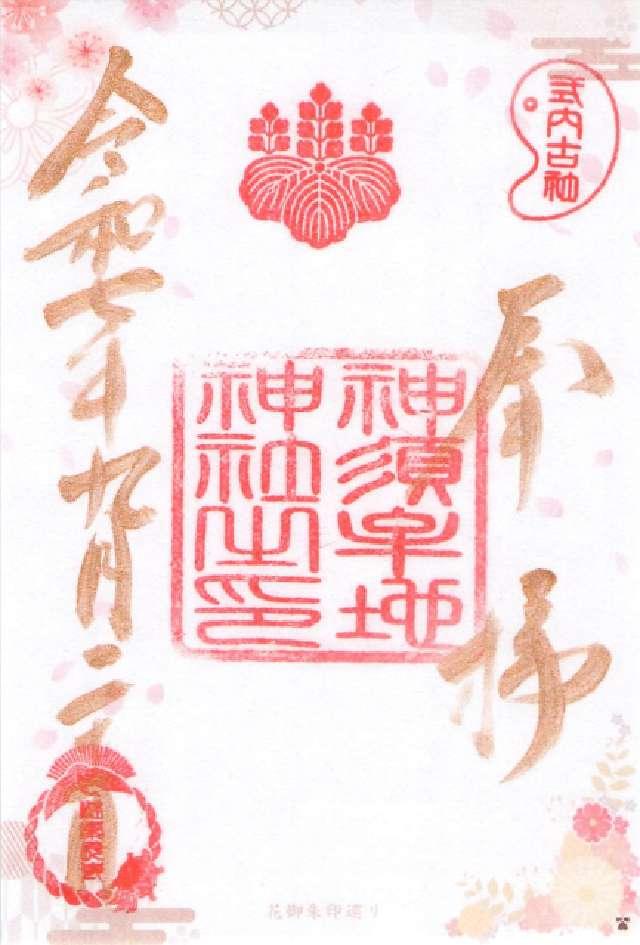 式内古社
奉拝
神須牟地
神社之印
令和七年九月二十日
花御朱印巡り